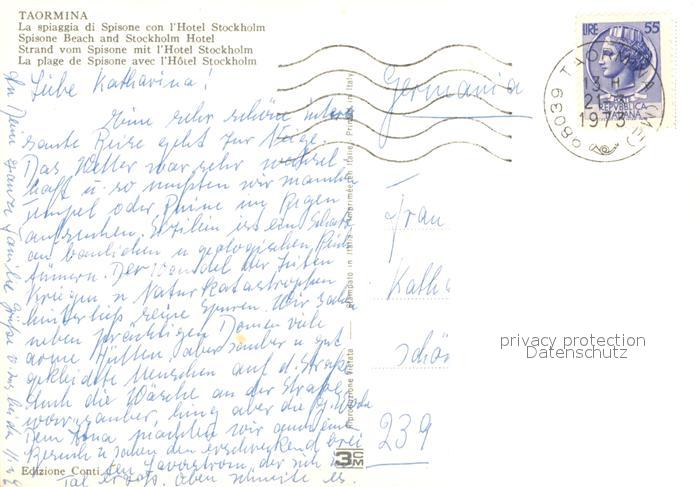 TAORMINA
La spiaggia di Spisone con l'Hotel Stockholm
Spisone Beach and Stockholm Hotel
Strand vom Spisone mit l'Hotel Stockholm
La plage de Spisone avec l'Hôtel Stockholm
Liebe Katharina!
Eine sehr schöne interes
sante Reise geht zur Neige.
Das Wetter war sehr wechsel
haft u. so mußten wir manche
Tempel oder Ruine im Regen
aufsuchen. Sizilien ist ein
an baulichen u geologischen
tümern. Der Wandel der Zeiten
Kriegen u Naturkatastrophen
hinterließ seine Spuren. Wir sahen
neben prächtigen Domen viele
arme Hütten, aber sauber u gut
gekleidete Menschen auf d. Straße
Auch die Wäsche an der Straße
war sauber, hing aber
Dem Ätna machten wir auch einen
Besuch u sahen den erschreckend
Lavastrom, der sich ins
Tal Oben schneite es.
An Deine ganze Familie Grüße
Edizione Conti
Riproduzione vietata — Stampato in Italia - Imprimée en Italie - Printed in Italy
3 CM
LIRE 55
REPVBBLICA
ITALIANA
98039 TAORMINA (ME)
13
1973
Germania
Frau
Kath
Schön
239
privacy protection
Datenschutz